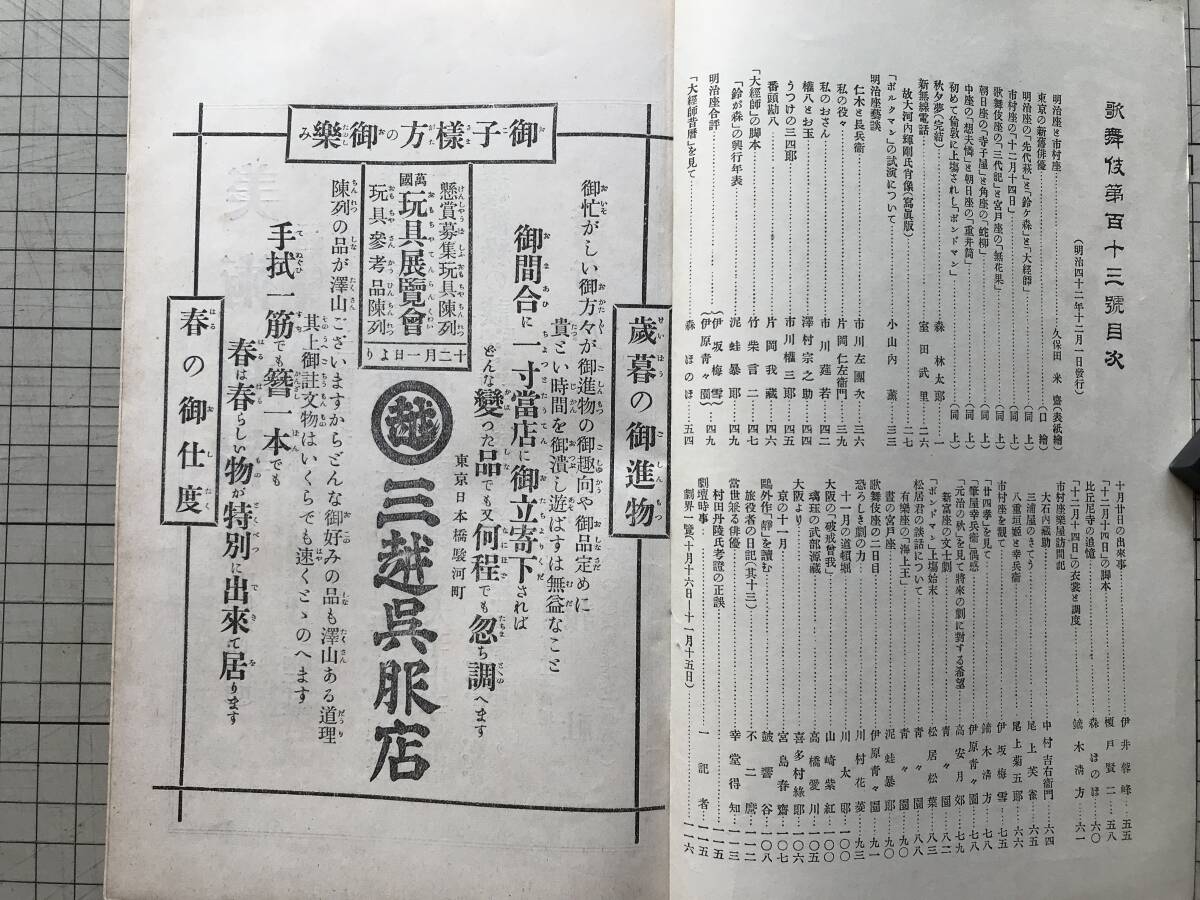 歌舞伎第百十三號目次
(明治四十二年十二月一日發行)
明治座と市村座………久保田米齋(表紙繪)
東京の新舊俳優………(口繪)
明治座の「先代萩」と「鈴ケ森」と「大經師」………(同上)
市村座の「十二月十四日」………(同上)
歌舞伎座の「三代記」と宮戸座の「無花果」………(同上)
朝日座の「寺子屋」と角座の「蛇柳」………(同上)
中座の「想夫憐」と朝日座の「重井筒」………(同上)
初めて倫敦に上塲されし「ボンドマン」………(同上)
秋夕夢(完結)………森林太郎…一
新無線電話………室田武里…二六
故大河内輝剛氏肖像(寫眞版)………二七
「ボルクマン」の試演について………小山内薫…三三
明治座藝談
仁木と長兵衞………市川左團次…三六
私の役々………片岡仁左衞門…三九
私のおさん………市川莚若…四二
權八とお玉………澤村宗之助…四四
うつけの三四郎………市川權三郎…四五
番頭勘八………片岡我藏…四六
「大經師」の脚本………竹柴言二…四七
「鈴が森」の興行年表………泥蛙暴郎…四九
明治座合評………伊坂梅雪 伊原青々園…四九
「大經師昔暦」を見て………森ほのほ…五四
十月廿日の出來事………伊井蓉峰…五五
「十二月十四日」の脚本………榎戸賢二…五八
比丘尼寺の追憶………森ほのほ…六〇
「十二月十四日」の衣裳と調度………鏑木清方…六一
市村座樂屋訪問記
大石内藏助………中村吉右衞門…六四
三浦屋のきてう………尾上芙雀…六五
八重垣姫と幸兵衞………尾上菊五郎…六六
市村座を觀て………伊坂梅雪…七五
「廿四孝」を見て………鏑木清方…七八
「筆屋幸兵衞」偶感………伊原青々園…七八
「元治の秋」を見て將來の劇に對する希望………高安月郊…七九
新富座の文士劇………青々園…八二
「ボンドマン」上塲始末………松居松葉…八三
松居君の談話について………青々園…八八
有樂座の「海上王」………青々園…九〇
晝の宮戸座………泥蛙暴郎…九〇
歌舞伎座の二日目………伊原青々園…九一
恐ろしき劇の力………川村花菱…九三
十一月の道頓堀………川太郎…一〇〇
大阪の「破戒曾我」………山崎紫紅…一〇〇
璃珏の武部源藏………高橋愛川…一〇五
大阪より………喜多村緑郎…一〇六
京の十一月………宮島春齋…一〇七
鷗外作「靜」を讀む………皷響谷…一〇八
旅役者の日記(其十三)………不二麿…一一二
當世下る俳優………幸堂得知…一一三
村田丹陵氏考證の正誤………一一五
劇壇時事………一記者…一一五
劇界一覽(十月十六日―十一月十五日)………一一六
歳暮の御進物
御忙がしい御方々が御進物の御趣向や御品定めに
貴とい時間を御潰し遊ばすは無益なこと
御間合に一寸當店に御立寄下されば
どんな變つた品でも又何程でも忽ち調へます
御子樣方の御樂み
懸賞募集玩具陳列
萬國玩具展覽會
玩具參考品陳列
十二月一日より
越
東京日本橋駿河町
三越呉服店
陳列の品が澤山ございますからどんな御好みの品も澤山ある道理
其上御註文物はいくらでも速くとゝのへます
手拭一筋でも簪一本でも
春は春らしい物が特別に出來て居ります
春の御仕度